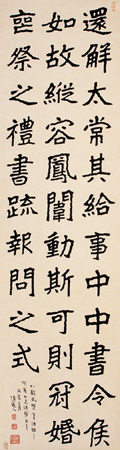 還解太常其給事中中書令侯
如故縱容鳳闈動斯可則冠婚
喪祭之禮書疏報問之式